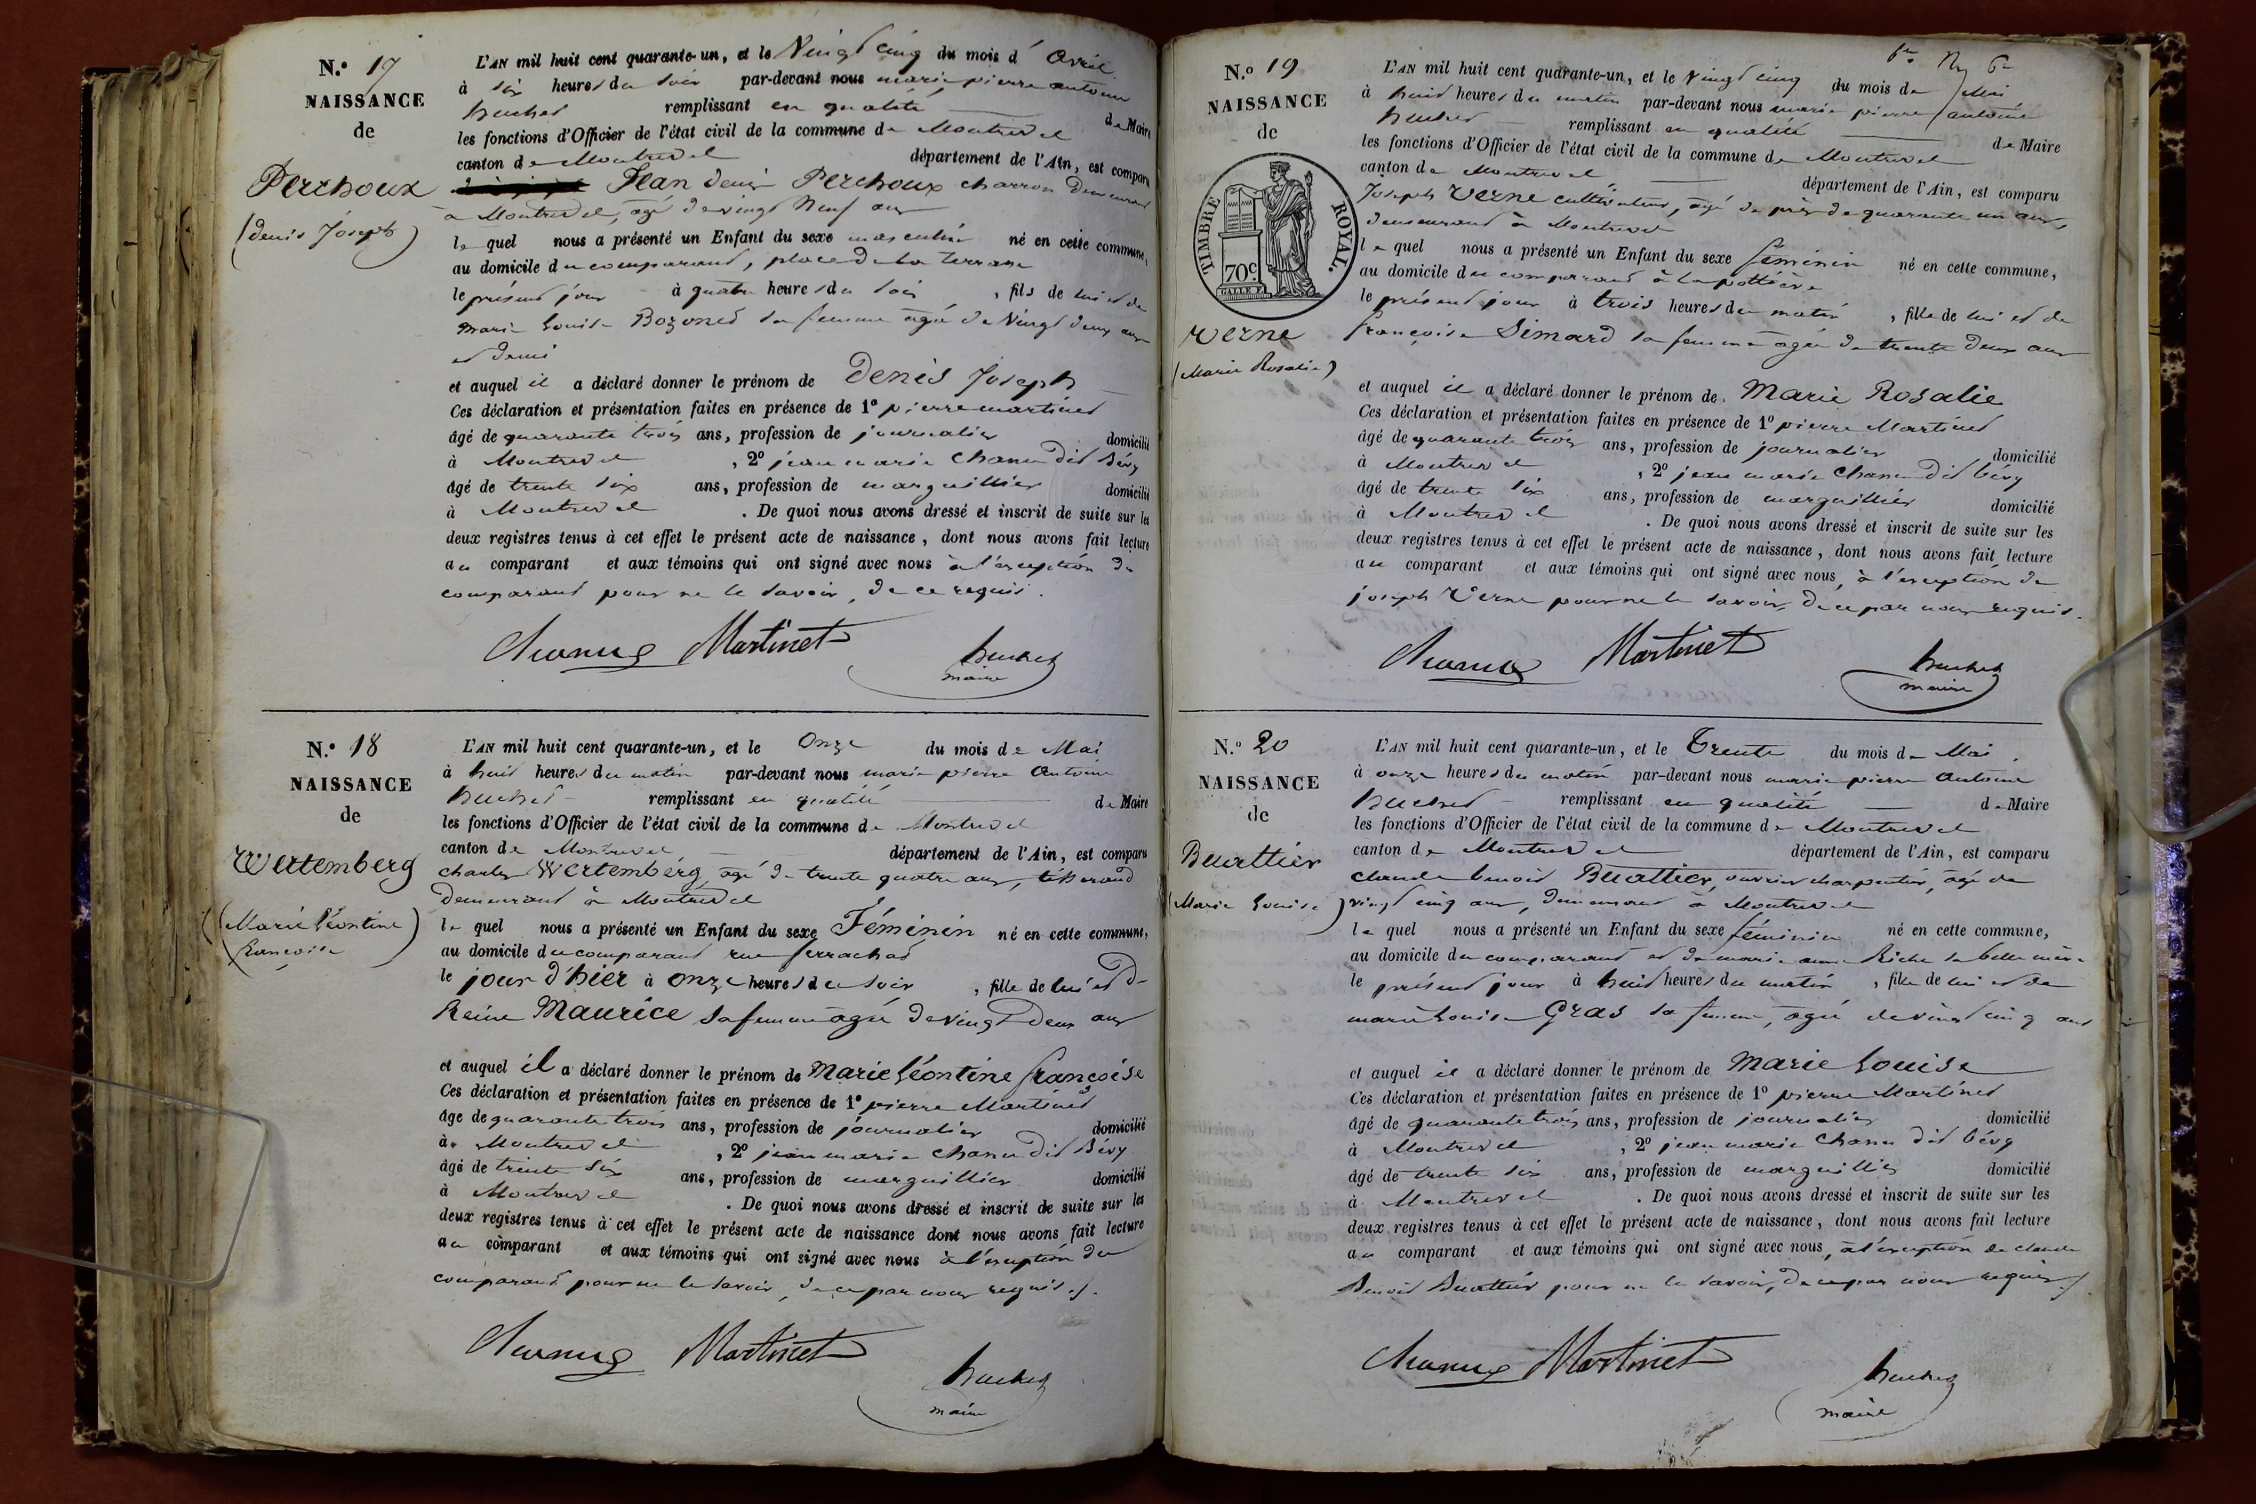 N.º 17
NAISSANCE
de
Perchoux
(denis Joseph)
L'AN mil huit cent quarante-un, et le Vingt cinq du mois d' Avril
à six heures du soir par-devant nous marie pierre antoine
huchet remplissant en qualité de Maire
les fonctions d'Officier de l'état civil de la commune de Montrevel
canton de Montrevel département de l'Ain, est comparu
Jean denis Perchoux charron demeurant
à Montrevel, agé de vingt neuf ans
le quel nous a présenté un Enfant du sexe masculin né en cette commune,
au domicile du comparant, place de la terrasse
le présent jour à quatre heures du soir, fils de lui et de
marie Louise Bozonet sa femme agée de Vingt deux ans
et demi
et auquel il a déclaré donner le prénom de Denis Joseph
Ces déclaration et présentation faites en présence de 1º pierre martinet
âgé de quarante trois ans, profession de journalier domicilié
à Montrevel, 2º jean marie Chanu dit Bévy
âgé de trente six ans, profession de marguillier domicilié
à Montrevel. De quoi nous avons dressé et inscrit de suite sur les
deux registres tenus à cet effet le présent acte de naissance, dont nous avons fait lecture
au comparant et aux témoins qui ont signé avec nous à l'exception du
comparant pour ne le savoir, de ce requis.
Chanu Martinet huchet
maire
N.º 18
NAISSANCE
de
Wertemberg
(Marie Léontine
françoise)
L'AN mil huit cent quarante-un, et le Onze du mois de Mai
à huit heures du matin par-devant nous marie pierre Antoine
huchet remplissant en qualité de Maire
les fonctions d'Officier de l'état civil de la commune de Montrevel
canton de Montrevel département de l'Ain, est comparu
charles Wertemberg, agé de trente quatre ans, tisserand
demeurant à Montrevel
le quel nous a présenté un Enfant du sexe Féminin né en cette commune,
au domicile du comparant rue ferrachat
le jour d'hier à onze heures du soir, fille de lui et de
Reine Maurice sa femme agée de vingt deux ans
et auquel il a déclaré donner le prénom de Marie Léontine françoise
Ces déclaration et présentation faites en présence de 1º pierre Martinet
âgé de quarante trois ans, profession de journalier domicilié
à Montrevel, 2º jean marie Chanu dit Bévy
âgé de trente six ans, profession de marguillier domicilié
à Montrevel. De quoi nous avons dressé et inscrit de suite sur les
deux registres tenus à cet effet le présent acte de naissance dont nous avons fait lecture
au comparant et aux témoins qui ont signé avec nous à l'exception du
comparant pour ne le savoir, de ce par nous requis.
Chanu Martinet huchet
maire
N.º 19
NAISSANCE
de
TIMBRE ROYAL.
70 C.
Verne
(Marie Rosalie)
L'AN mil huit cent quarante-un, et le vingt cinq du mois de Mai
à huit heures du matin par-devant nous marie pierre antoine
huchet remplissant en qualité de Maire
les fonctions d'Officier de l'état civil de la commune de Montrevel
canton de Montrevel département de l'Ain, est comparu
Joseph Verne cultivateur, agé de près de quarante un ans,
demeurant à Montrevel
le quel nous a présenté un Enfant du sexe féminin né en cette commune,
au domicile du comparant à la pottière
le présent jour à trois heures du matin, fille de lui et de
françoise Simard sa femme agée de trente deux ans
et auquel il a déclaré donner le prénom de Marie Rosalie
Ces déclaration et présentation faites en présence de 1º pierre Martinet
âgé de quarante trois ans, profession de journalier domicilié
à Montrevel, 2º jean marie Chanu dit bévy
âgé de trente six ans, profession de marguillier domicilié
à Montrevel. De quoi nous avons dressé et inscrit de suite sur les
deux registres tenus à cet effet le présent acte de naissance, dont nous avons fait lecture
au comparant et aux témoins qui ont signé avec nous, à l'exception de
joseph Verne pour ne le savoir, de ce par nous requis.
Chanu Martinet huchet
maire
N.º 20
NAISSANCE
de
Buattier
(Marie Louise)
L'AN mil huit cent quarante-un, et le Trente du mois de Mai
à onze heures du matin par-devant nous marie pierre Antoine
huchet remplissant en qualité de Maire
les fonctions d'Officier de l'état civil de la commune de Montrevel
canton de Montrevel département de l'Ain, est comparu
claude benoit Buattier, ouvrier charpentier, agé de
vingt cinq ans, demeurant à Montrevel
le quel nous a présenté un Enfant du sexe féminin né en cette commune,
au domicile du comparant et de marie anne Riche sa belle mère
le présent jour à huit heures du matin, fille de lui et de
marie Louise Gras sa femme, agée de vingt cinq ans
et auquel il a déclaré donner le prénom de Marie Louise
Ces déclaration et présentation faites en présence de 1º pierre Martinet
âgé de quarante trois ans, profession de journalier domicilié
à Montrevel, 2º jean marie Chanu dit bévy
âgé de trente six ans, profession de marguillier domicilié
à Montrevel. De quoi nous avons dressé et inscrit de suite sur les
deux registres tenus à cet effet le présent acte de naissance, dont nous avons fait lecture
au comparant et aux témoins qui ont signé avec nous, à l'exception de claude
Benoit Buattier pour ne le savoir, de ce par nous requis
Chanu Martinet huchet
maire